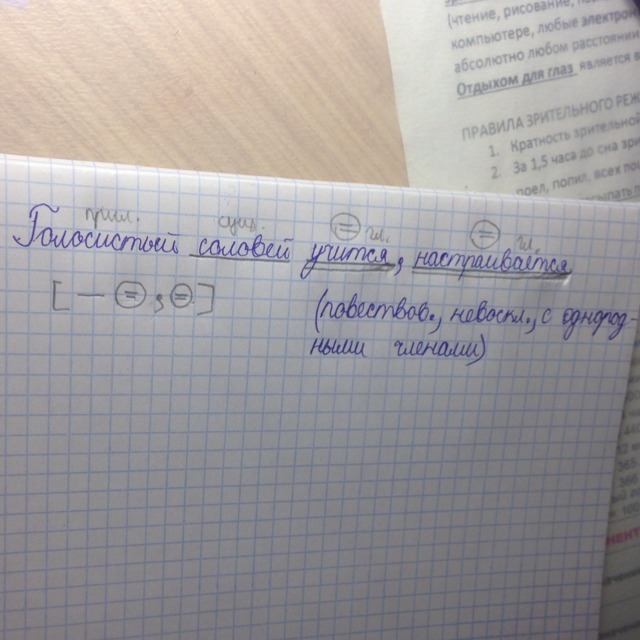 (чтение, рисование,
компьютере, любые электро
абсолютно любом расстоянии
Отдыхом для глаз является в
ПРАВИЛА ЗРИТЕЛЬНОГО РЕЖ
1. Кратность зрительной
2. За 1,5 часа до сна зри
поел, попил, всех по
прил. сущ. гл. гл.
Голосистый соловей учится, настраивается
[ — =, = ]
(повествов., невоскл., с однород-
ными членами)